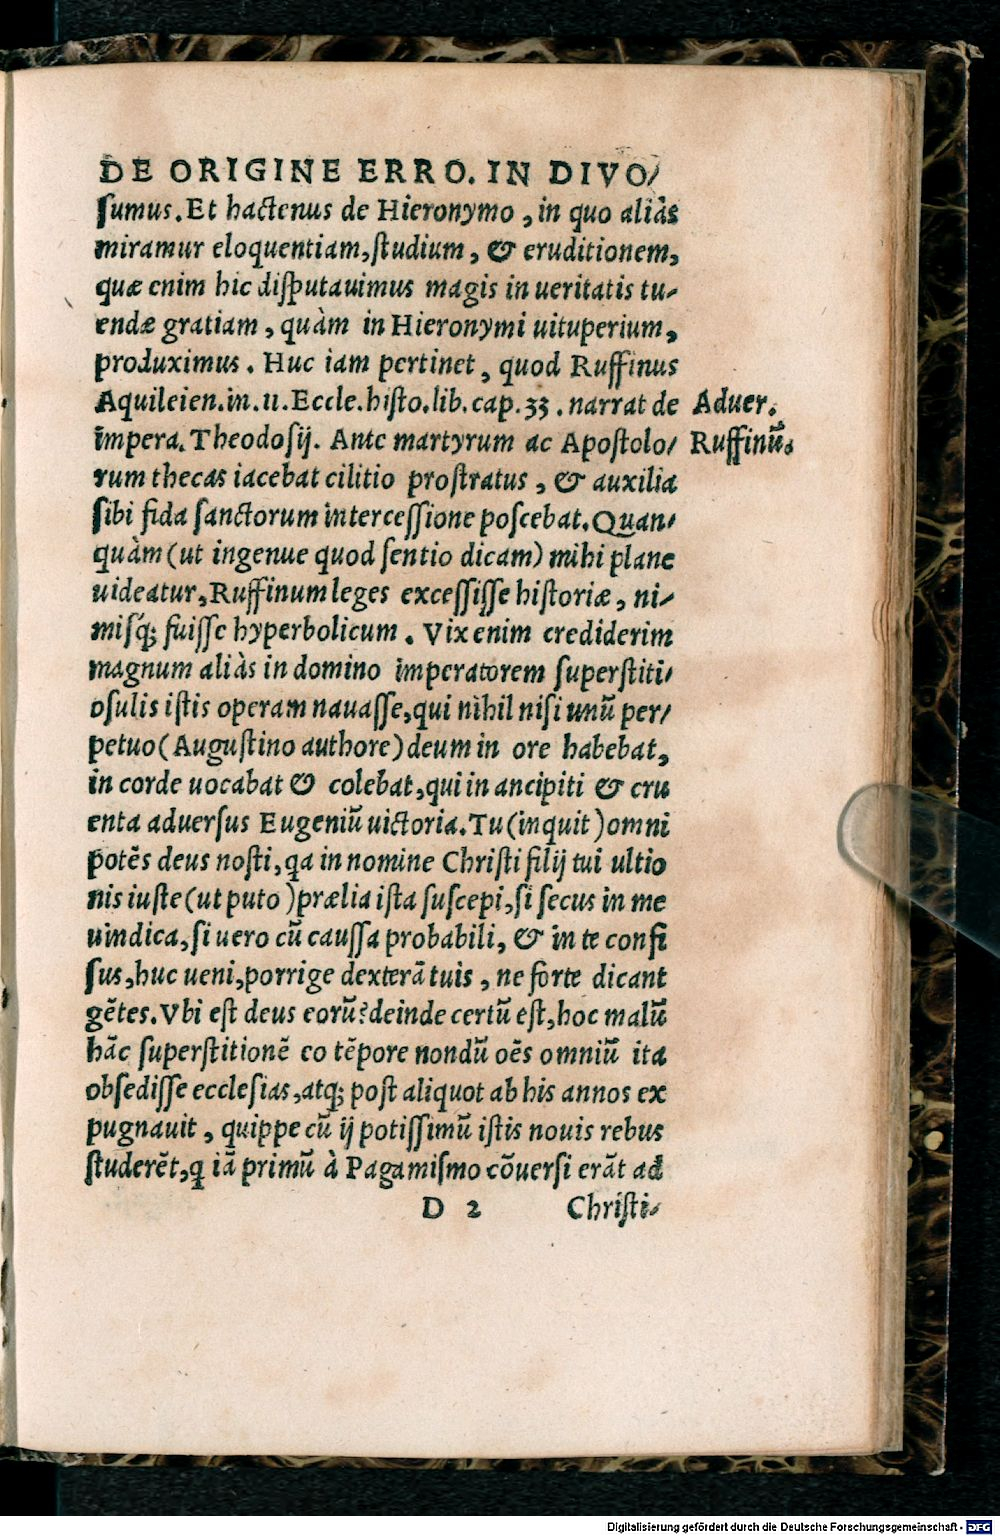 DE ORIGINE ERRO. IN DIVO/
sumus. Et hactenus de Hieronymo, in quo aliàs
miramur eloquentiam, studium, & eruditionem,
quæ enim hic disputauimus magis in ueritatis tu-
endæ gratiam, quàm in Hieronymi uituperium,
produximus. Huc iam pertinet, quod Ruffinus
Aquileien. in. 11. Eccle. histo. lib. cap. 33. narrat de
Aduer.
impera. Theodosij. Ante martyrum ac Apostolo/
Ruffinũ.
rum thecas iacebat cilitio prostratus, & auxilia
sibi fida sanctorum intercessione poscebat. Quan/
quàm (ut ingenue quod sentio dicam) mihi plane
uideatur, Ruffinum leges excessisse historiæ, ni-
misq; fuisse hyperbolicum. Vix enim crediderim
magnum aliàs in domino imperatorem superstiti/
osulis istis operam nauasse, qui nihil nisi unũ per/
petuo (Augustino authore) deum in ore habebat,
in corde uocabat & colebat, qui in ancipiti & cru
enta aduersus Eugeniũ uictoria. Tu (inquit) omni
potẽs deus nosti, qa in nomine Christi filij tui ultio
nis iuste (ut puto) prælia ista suscepi, si secus in me
uindica, si uero cũ caussa probabili, & in te confi
sus, huc ueni, porrige dexterã tuis, ne forte dicant
gẽtes. Vbi est deus eorũ? deinde certũ est, hoc malũ
hãc superstitionẽ eo tẽpore nondũ oẽs omniũ ita
obsedisse ecclesias, atq; post aliquot ab his annos ex
pugnauit, quippe cũ ij potissimũ istis nouis rebus
studerẽt, q iã primũ à Pagamismo cõuersi erãt ad
D 2 Christi-
Digitalisierung gefördert durch die Deutsche Forschungsgemeinschaft - DFG